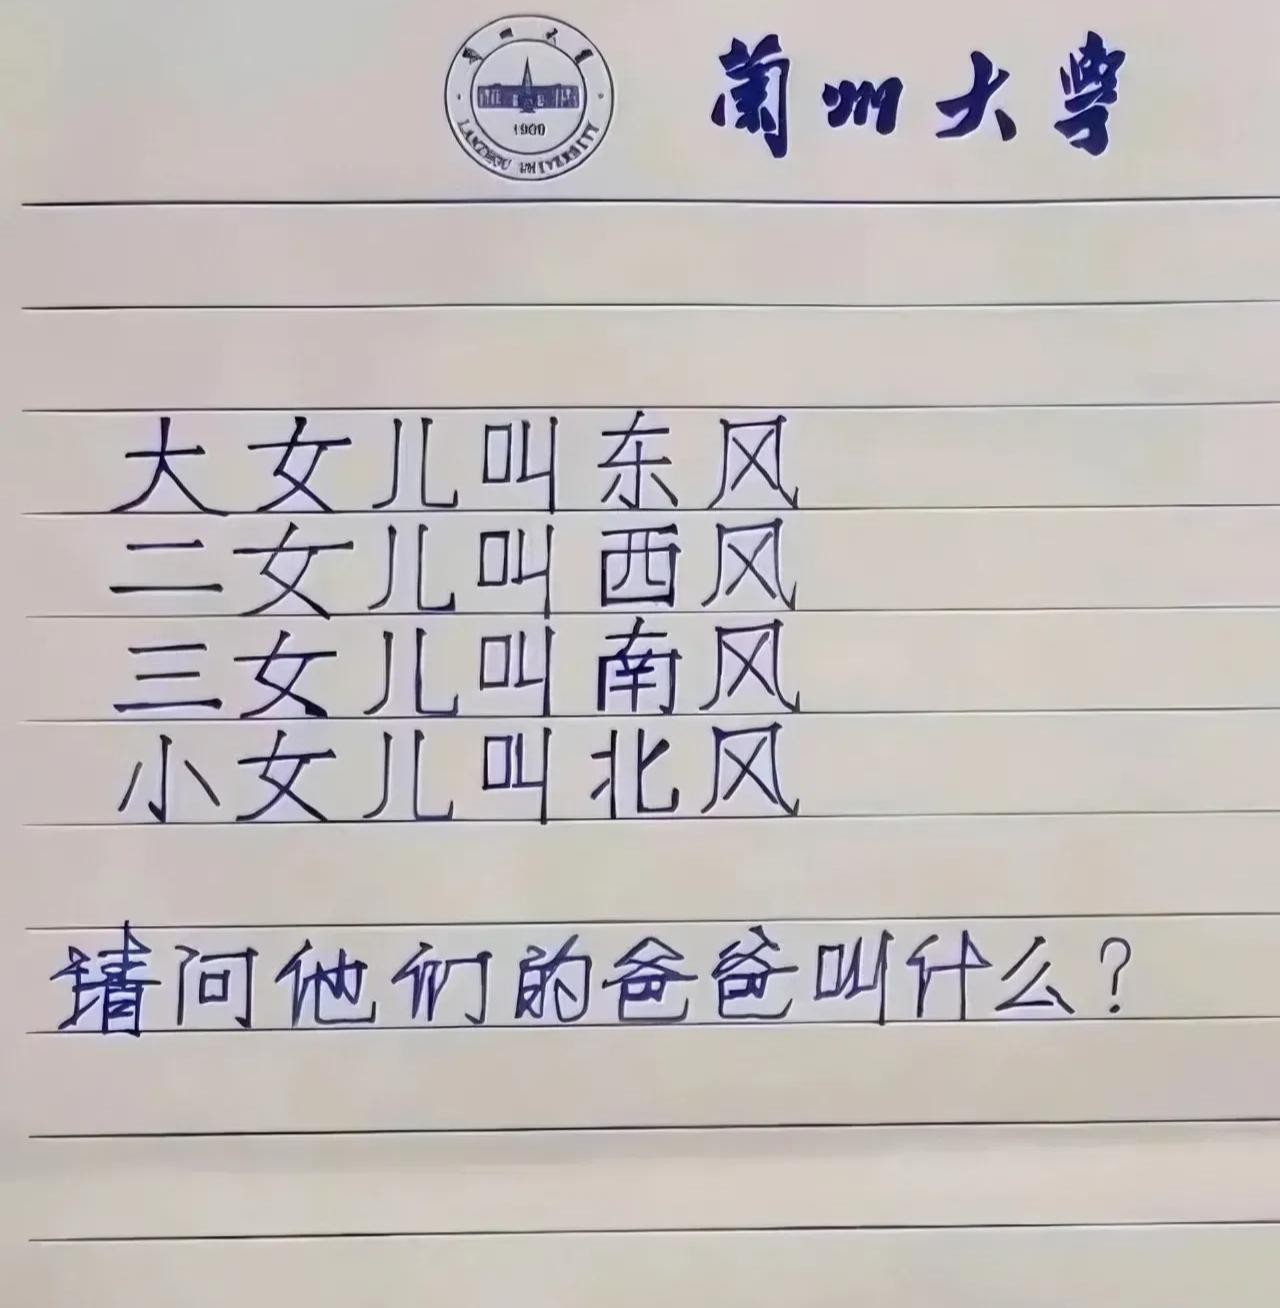 兰州大学
1909
LANZHOU UNIVERSITY
大女儿叫东风
二女儿叫西风
三女儿叫南风
小女儿叫北风
请问他们的爸爸叫什么?